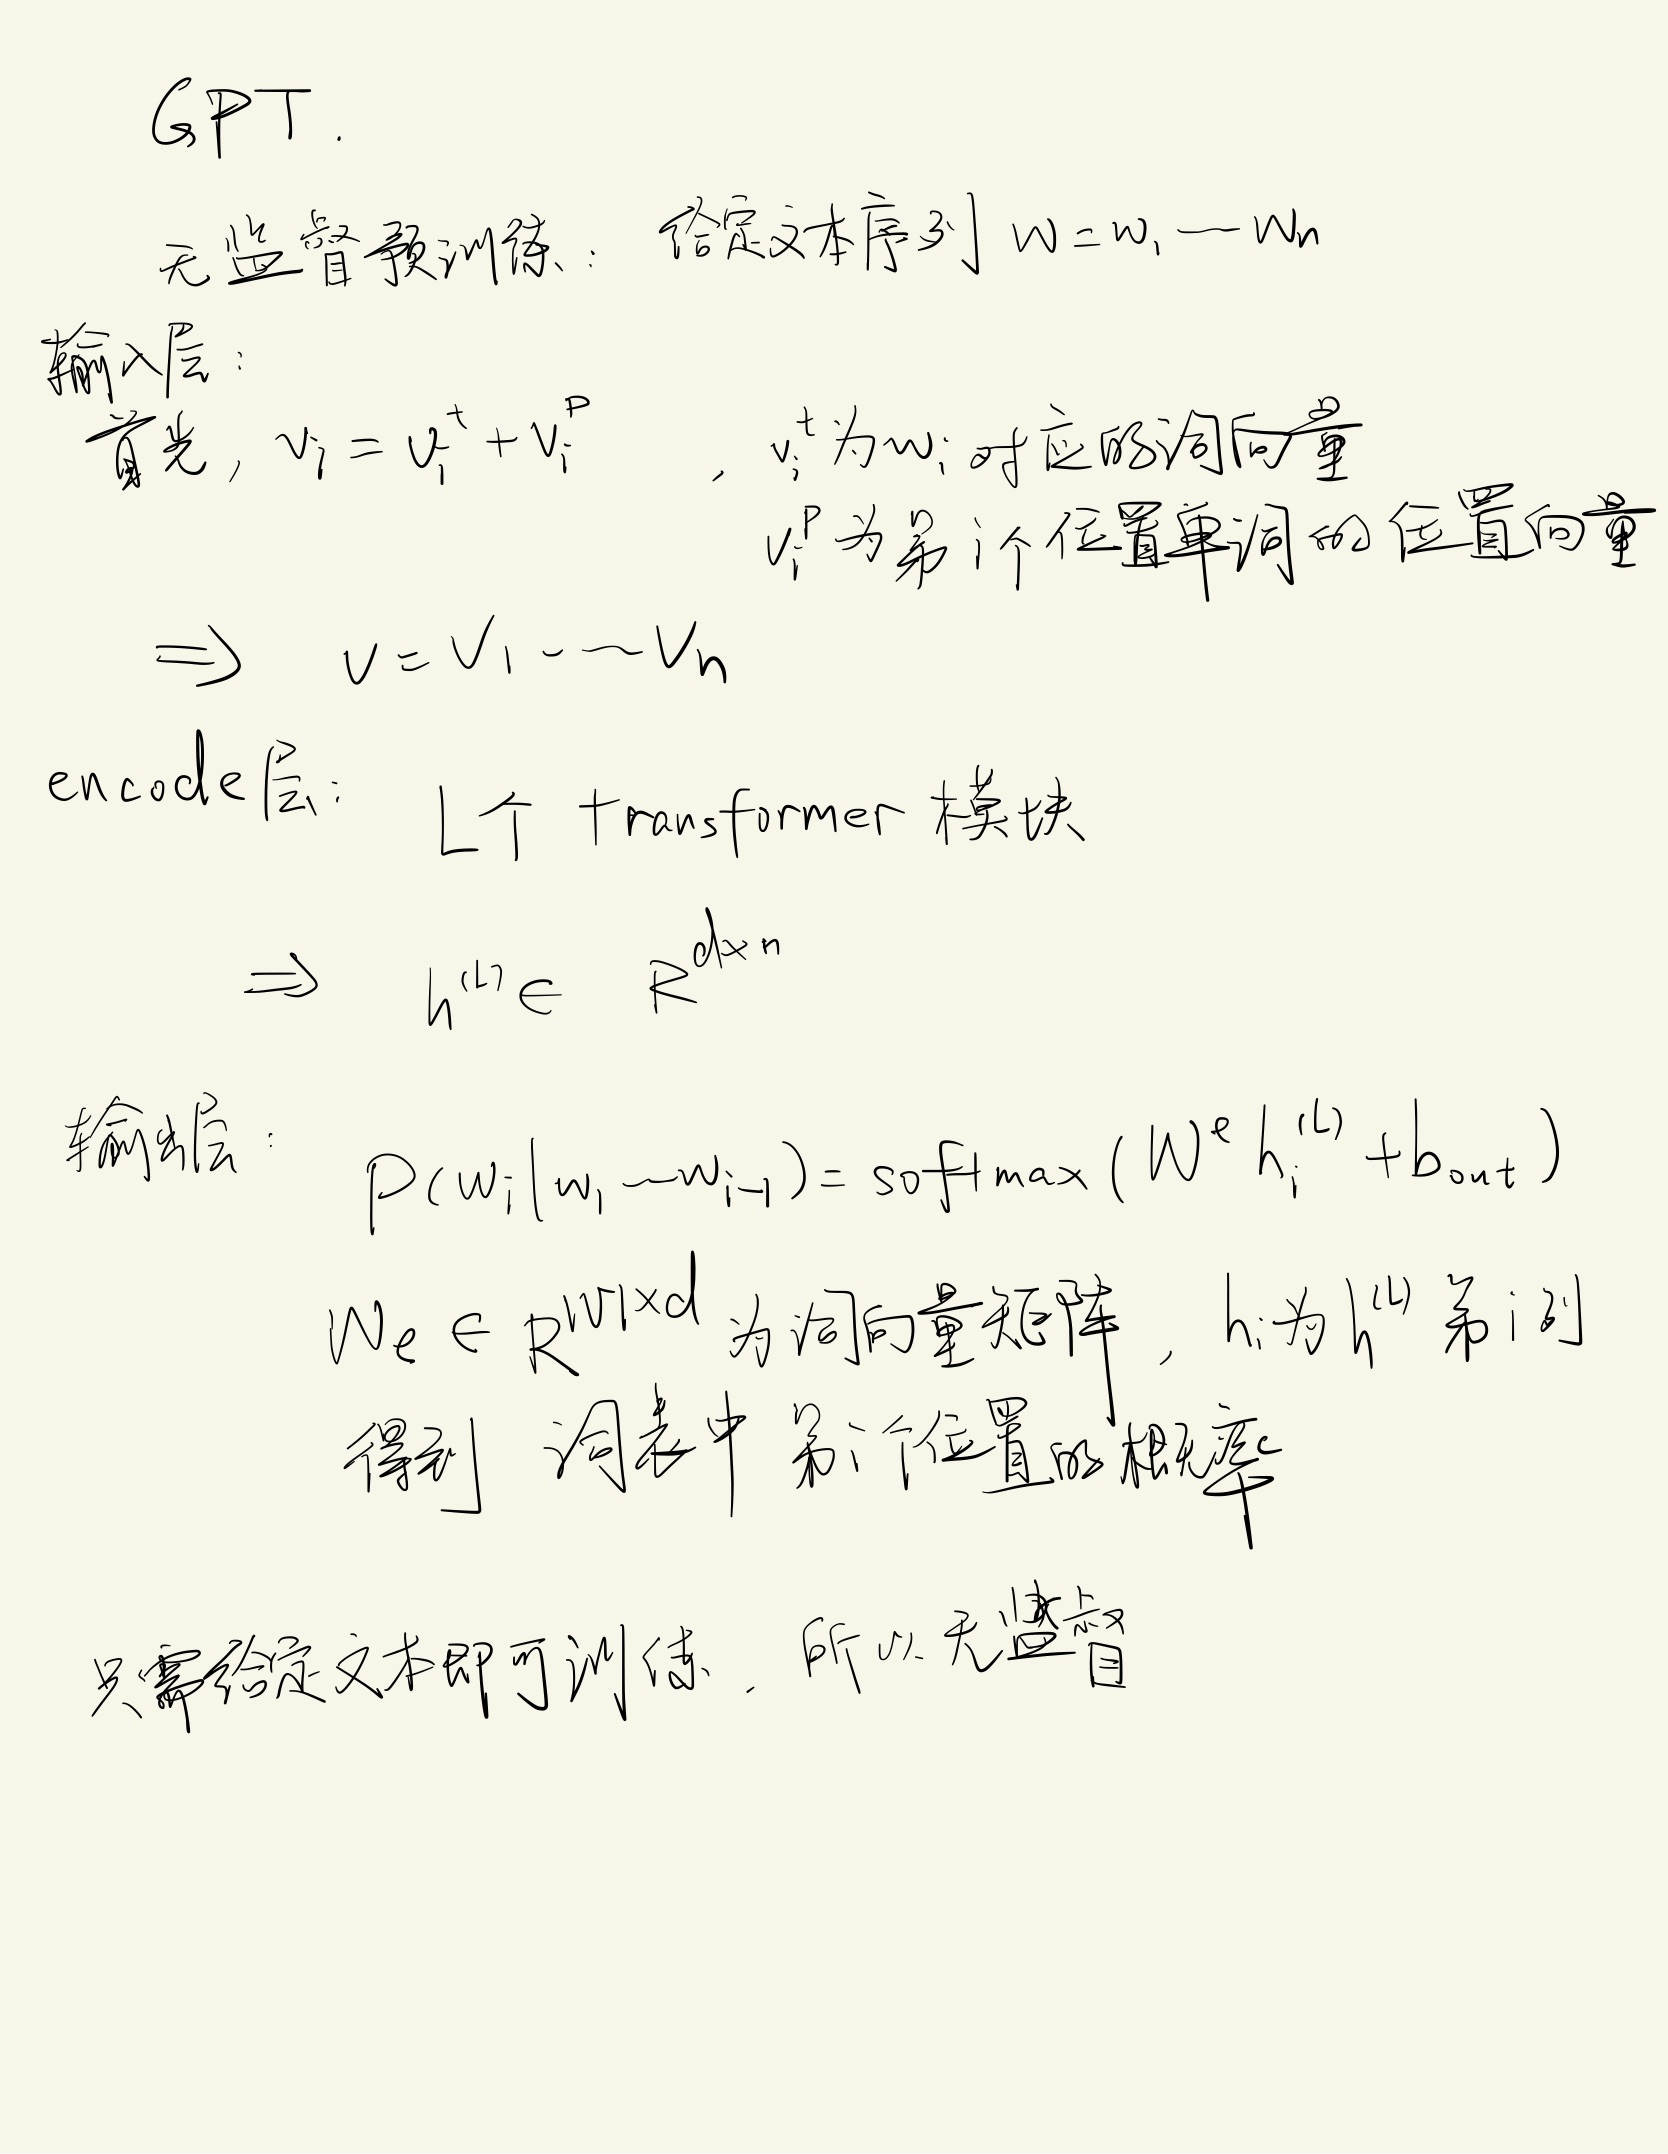 GPT.
无监督预训练: 给定文本序列 w = w₁ — wₙ
输入层:
首先, vᵢ = vᵢᵗ + vᵢᵖ , vᵢᵗ为wᵢ对应的词向量
vᵢᵖ为第i个位置单词的位置向量
⇒ v = v₁ --- vₙ
encode层: L个 transformer 模块
⇒ h⁽ᴸ⁾ ∈ R^{d×n}
输出层: P(wᵢ|w₁ — wᵢ₋₁) = softmax(Wᵉ hᵢ⁽ᴸ⁾ + b_out)
Wₑ ∈ R^{|V|×d} 为词向量矩阵, hᵢ为h⁽ᴸ⁾第i列
得到 词表中 第i个位置的概率
只需给定文本即可训练. 所以无监督